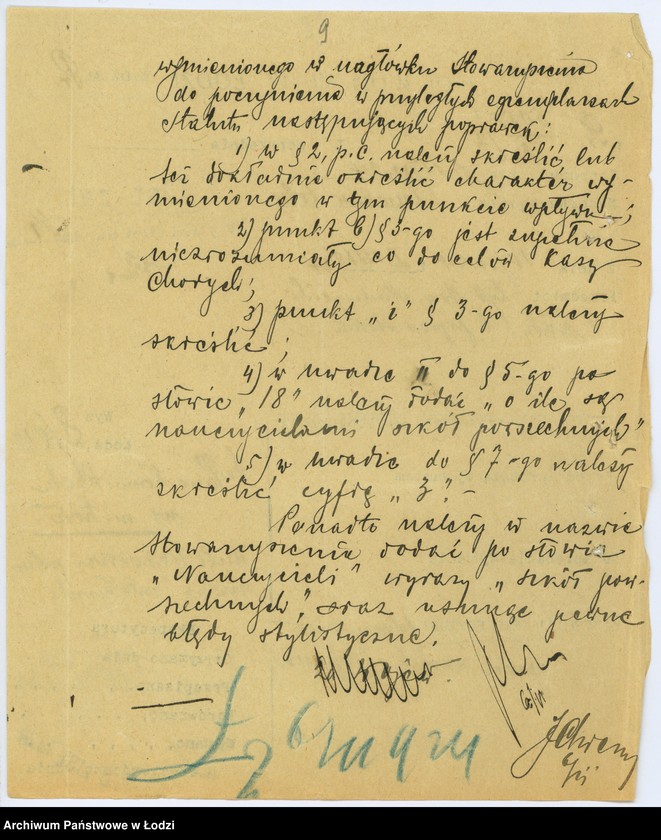 9
wymienionego w nagłówku Stowarzyszenia
do poczynienia w przyległych egzemplarzach
statutu następujących poprawek:
1) w § 2, p. c. należy skreślić lub
też dokładnie określić charakter wy-
mienionego w tym punkcie wpływu;
2) punkt b) § 3-go jest zupełnie
niezrozumiały co do celów Kasy
Chorych;
3) punkt „i" § 3-go należy
skreślić;
4) w uwadze II do § 5-go po
słowie „18" należy dodać „o ile są
nauczycielami szkół powszechnych"
5) w uwadze do § 7-go należy
skreślić cyfrę „3". –
Ponadto należy w nazwie
Stowarzyszenia dodać po słowie
„Nauczycieli" wyrazy „szkół pow-
szechnych", oraz usunąć pewne
błędy stylistyczne.
Archiwum Państwowe w Łodzi